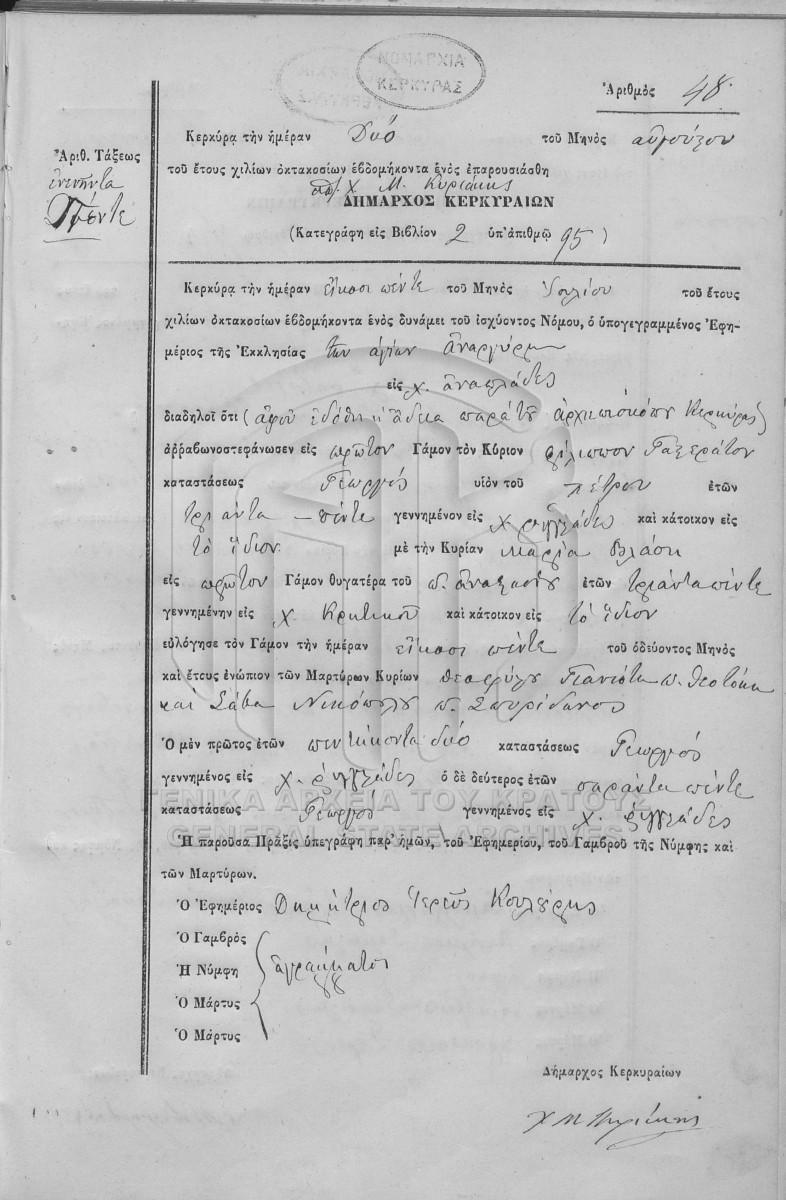 ΝΟΜΑΡΧΙΑ
ΚΕΡΚΥΡΑΣ
Ἀριθμὸς 48
Κερκύρᾳ τὴν ἡμέραν Δύο τοῦ Μηνὸς αὐγούστου
Ἀριθ. Τάξεως
ἐνενῆντα
Πέντε
τοῦ ἔτους χιλίων ὀκτακοσίων ἑβδομήκοντα ἑνὸς ἐπαρουσιάσθη
Χ Μ. Κυριάκης
ΔΗΜΑΡΧΟΣ ΚΕΡΚΥΡΑΙΩΝ
(Κατεγράφη εἰς Βιβλίον 2 ὑπ' ἀριθμῷ 95)
Κερκύρᾳ τὴν ἡμέραν εἴκοσι πέντε τοῦ Μηνὸς Ἰουλίου τοῦ ἔτους
χιλίων ὀκτακοσίων ἑβδομήκοντα ἑνὸς δυνάμει τοῦ ἰσχύοντος Νόμου, ὁ ὑπογεγραμμένος Ἐφη-
μέριος τῆς Ἐκκλησίας τῶν ἁγίων ἀναργύρων
εἰς χ. ἀναπλάδες
διαδηλοῖ ὅτι (ἀφοῦ ἐδόθη ἡ ἄδεια παρὰ τοῦ ἀρχιεπισκόπου Κερκύρας)
ἀρραβωνοστεφάνωσεν εἰς πρῶτον Γάμον τὸν Κύριον φίλιππον Γαζεράτον
καταστάσεως Γεωργὸς υἱὸν τοῦ πέτρου ἐτῶν
τριάντα - πέντε γεννημένον εἰς χ ριγγλάδες καὶ κάτοικον εἰς
τὸ ἴδιον μὲ τὴν Κυρίαν Μαρία Βλάση
εἰς πρῶτον Γάμον θυγατέρα τοῦ π. ἀναστασίου ἐτῶν τριάντα πέντε
γεννημένην εἰς χ. Κρητικοῦ καὶ κάτοικον εἰς τὸ ἴδιον
εὐλόγησε τὸν Γάμον τὴν ἡμέραν εἴκοσι πέντε τοῦ ὁδεύοντος Μηνὸς
καὶ ἔτους ἐνώπιον τῶν Μαρτύρων Κυρίων Θεοφύλου Γιανιότα π. Θεοτόκη
καὶ Σάβα Νικόπουλου π. Σπυρίδωνος
Ὁ μὲν πρῶτος ἐτῶν πεντήκοντα δύο καταστάσεως Γεωργός
γεννημένος εἰς χ. ριγγλάδες ὁ δὲ δεύτερος ἐτῶν σαράντα πέντε
ΓΕΝΙΚΑ ΑΡΧΕΙΑ ΤΟΥ ΚΡΑΤΟΥΣ
καταστάσεως Γεωργὸς γεννημένος εἰς χ. ριγγλάδες
GENERAL STATE ARCHIVES
Ἡ παροῦσα Πρᾶξις ὑπεγράφη παρ' ἡμῶν, τοῦ Ἐφημερίου, τοῦ Γαμβροῦ τῆς Νύμφης καὶ
τῶν Μαρτύρων.
Ὁ Ἐφημέριος Δημήτριος Ἱερεὺς Κουλούρης
Ὁ Γαμβρὸς
Ἡ Νύμφη ἀγράμματοι
Ὁ Μάρτυς
Ὁ Μάρτυς
Δήμαρχος Κερκυραίων
Χ Μ Κυριάκης